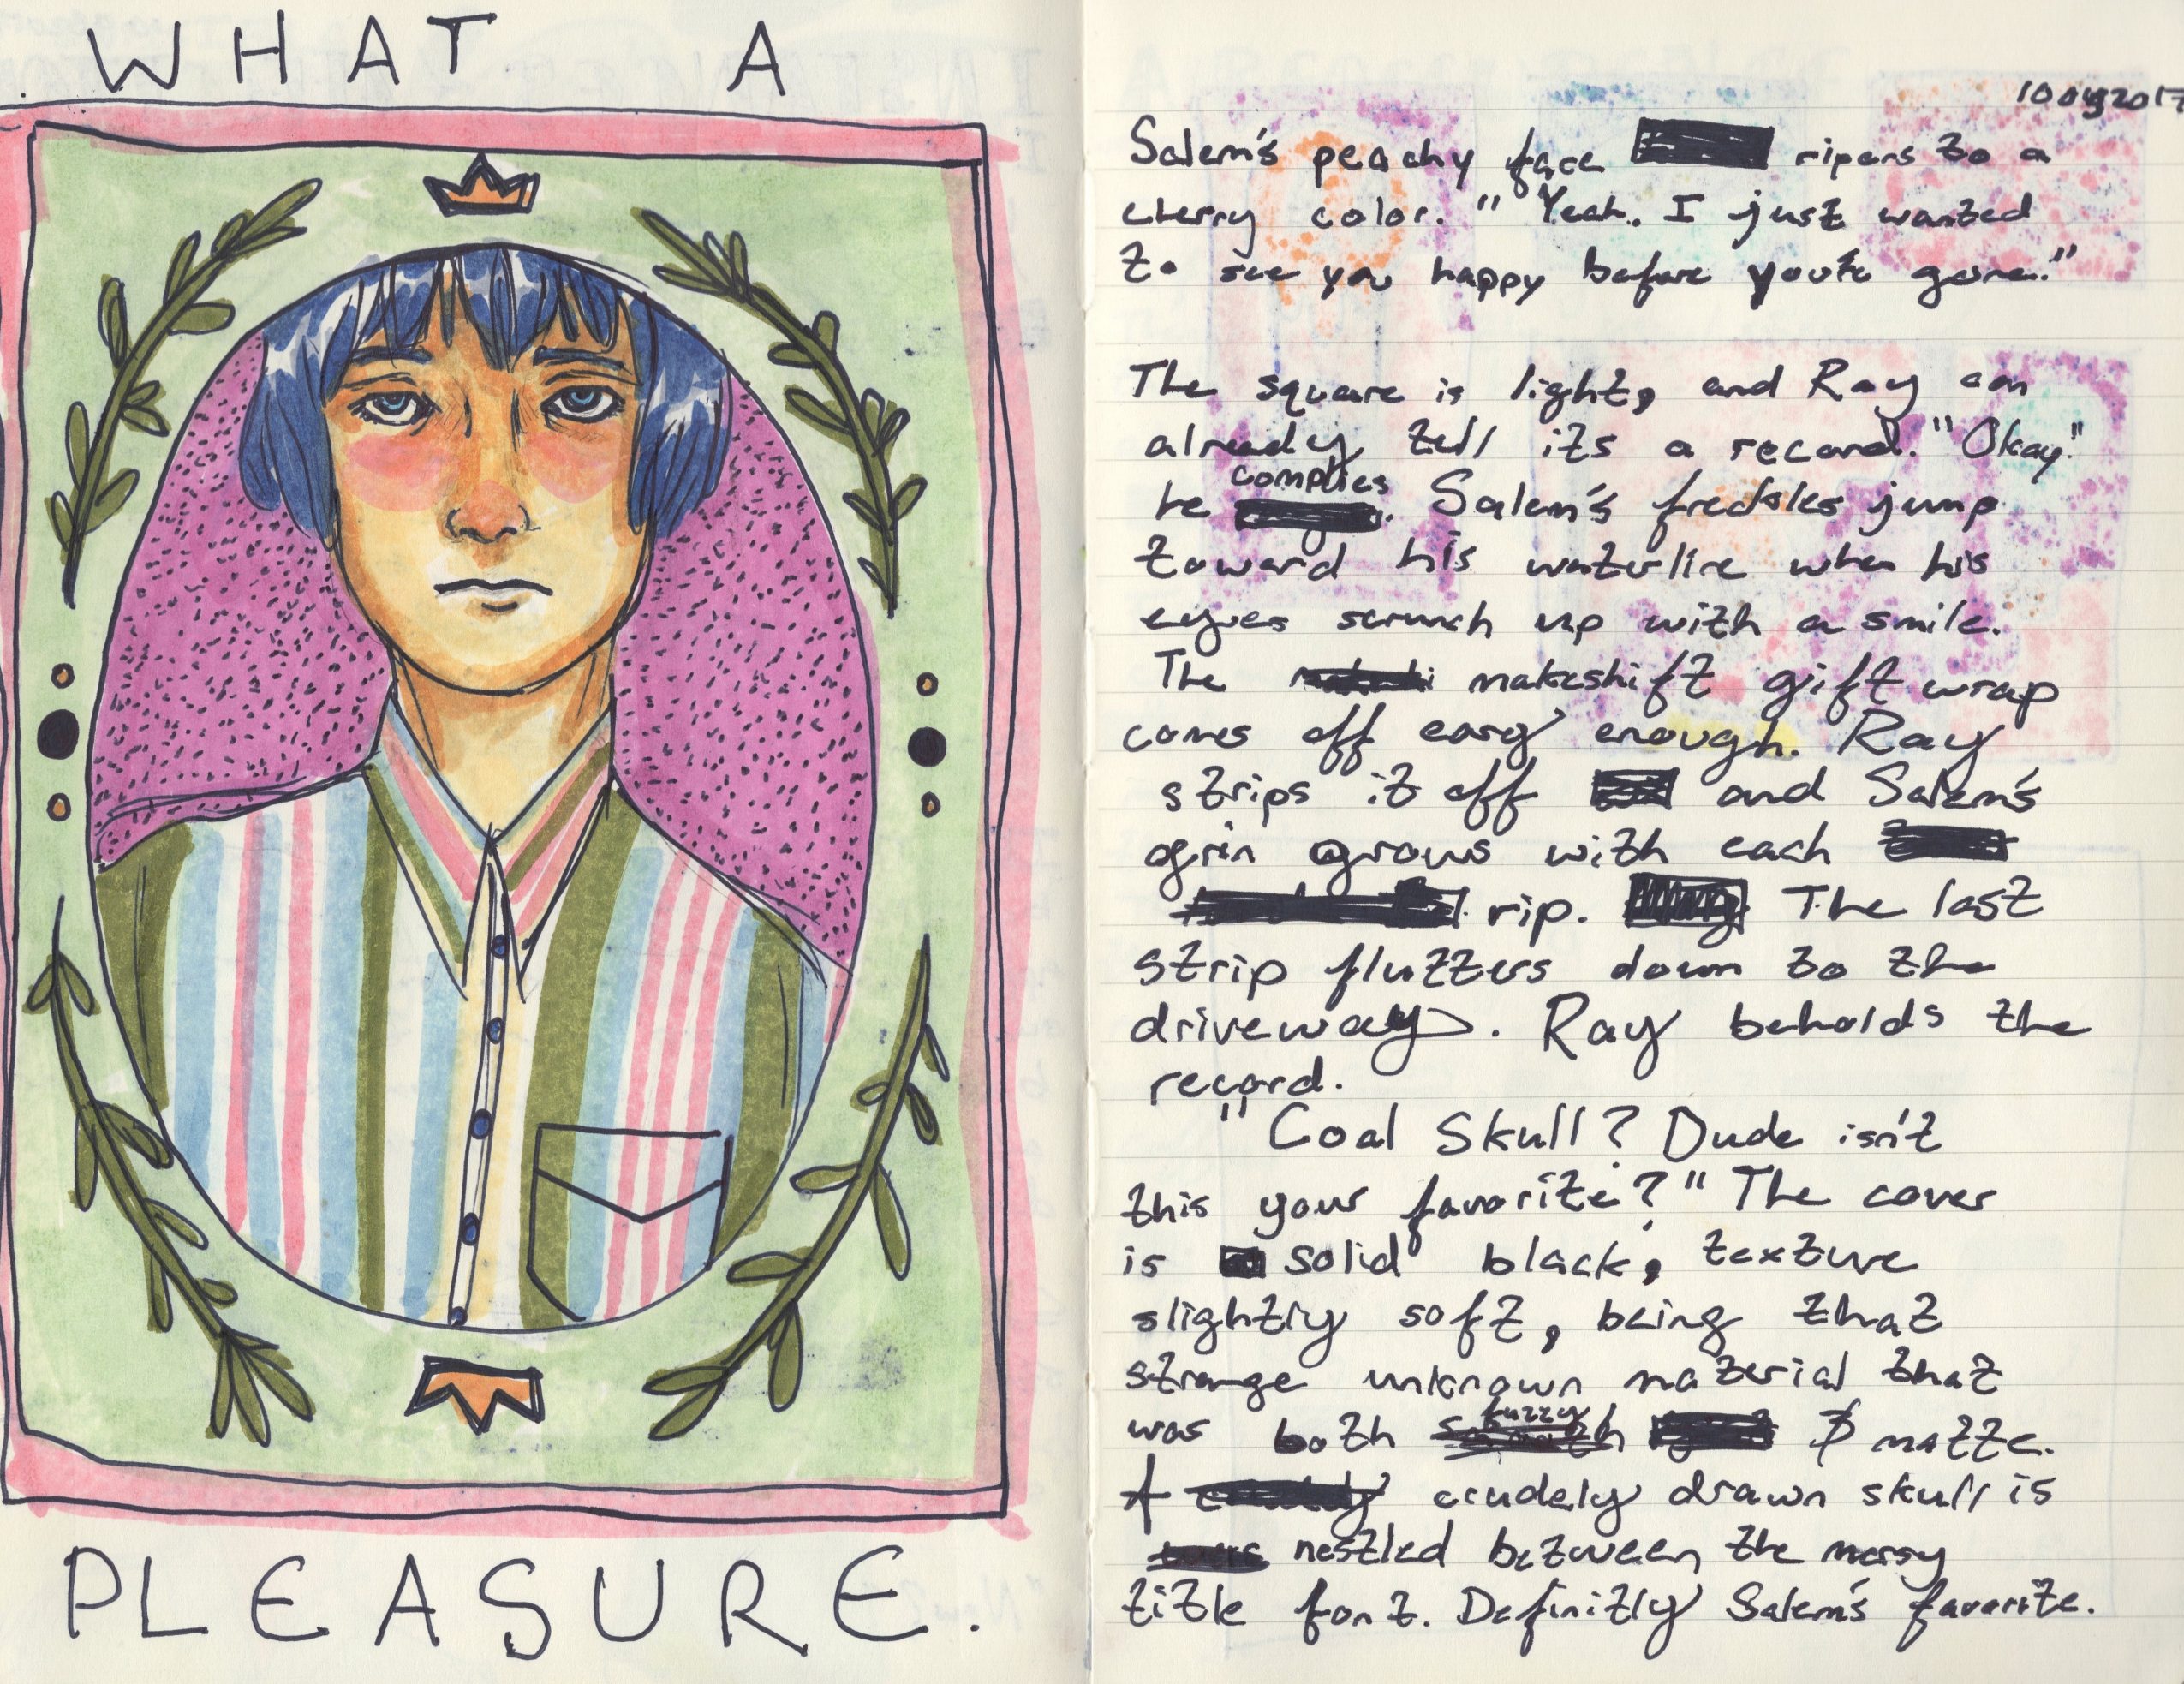 WHAT A
PLEASURE.
10 aug 2017
Salem's peachy face ripens to a
cherry color. "Yeah. I just wanted
to see you happy before you're gone."
The square is light, and Ray can
already tell its a record. "Okay."
he complies. Salem's freckles jump
toward his waterline when his
eyes scrunch up with a smile.
The makeshift gift wrap
comes off easy enough. Ray
strips it off and Salem's
grin grows with each
rip. The last
strip flutters down to the
driveway. Ray beholds the
record.
"Coal Skull? Dude isn't
this your favorite?" The cover
is solid black, texture
slightly soft, being that
strange unknown material that
was both fuzzy & matte.
A crudely drawn skull is
nestled between the messy
title font. Definitly Salem's favorite.